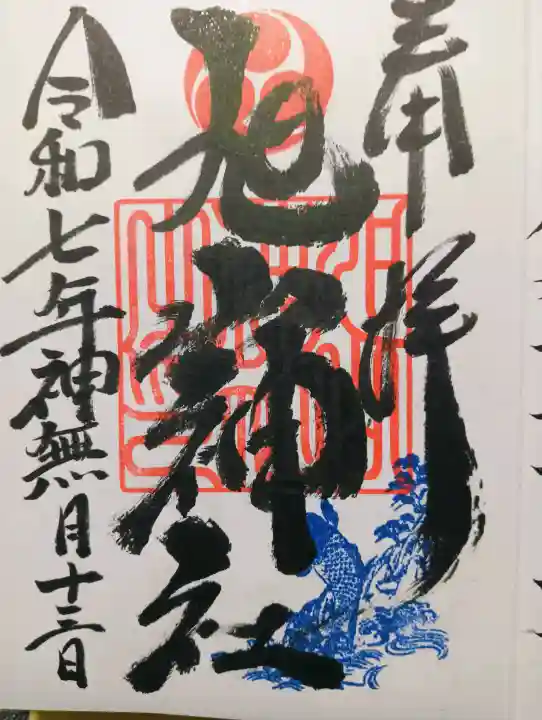 奉拝
旭神社
令和七年神無月十三日